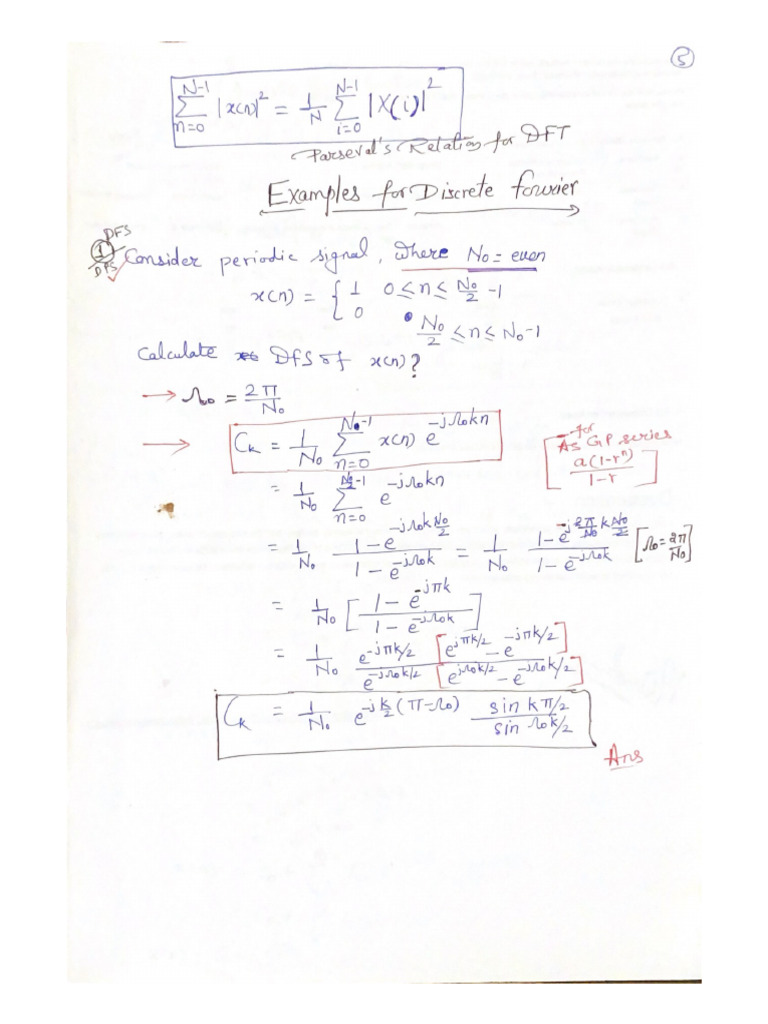 5
N-1 Σ n=0 |x(n)|² = 1/N N-1 Σ i=0 |X(i)|²
Parseval's Relation for DFT
Examples for Discrete fourier
DFS
1 Consider periodic signal, where N₀ = even
DFS
x(n) = { 1 0 ≤ n ≤ N₀/2 - 1
0 N₀/2 ≤ n ≤ N₀-1
Calculate DFS of x(n)?
→ Ω₀ = 2π/N₀
→ Cₖ = 1/N₀ N₀-1 Σ n=0 x(n) e^-jΩ₀kn
for
As GP series
[ a(1-rⁿ)/1-r ]
= 1/N₀ N₀/2-1 Σ n=0 e^-jΩ₀kn
= 1/N₀ 1-e^-jΩ₀k N₀/2 / 1-e^-jΩ₀k = 1/N₀ 1-e^-j 2π/N₀ k N₀/2 / 1-e^-jΩ₀k [Ω₀ = 2π/N₀]
= 1/N₀ [ 1-e^-jπk / 1-e^-jΩ₀k ]
= 1/N₀ e^-jπk/2 [e^jπk/2 - e^-jπk/2] / e^-jΩ₀k/2 [e^jΩ₀k/2 - e^-jΩ₀k/2]
Cₖ = 1/N₀ e^-j k/2 (π-Ω₀) sin kπ/2 / sin Ω₀k/2
Ans